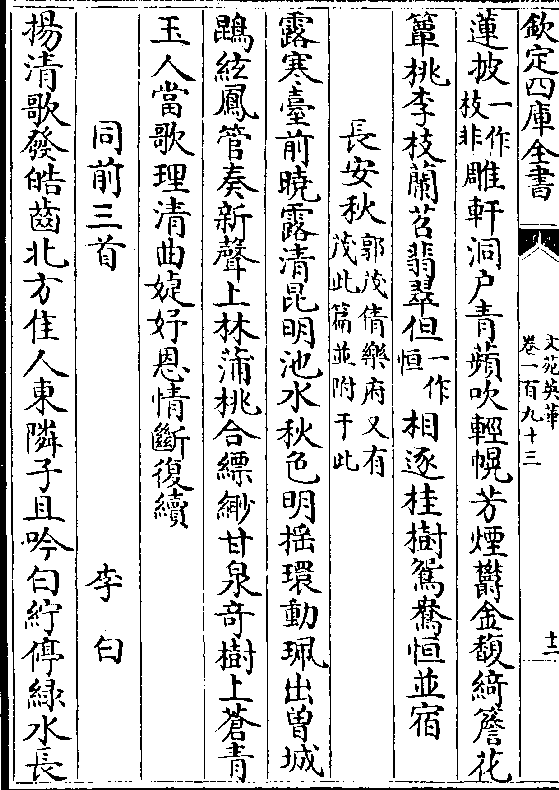 欽定四庫全書
文苑英華
卷一百九十三
十二
蓮披一作枝非雕軒洞户青蘋吹輕幌芳煙鬱金馥綺簷花
簟桃李枝蘭苕翡翠但一作恒相逐桂樹鴛鴦恒並宿
長安秋郭茂倩樂府又有茂此篇並附于此
露寒臺前曉露清昆明池水秋色明揺環動珮出曽城
鵾絃鳳管奏新聲上林蒲桃合縹緲甘泉奇樹上蒼青
玉人當歌理清曲婕妤恩情斷復續
同前三首 李白
揚清歌發皓齒北方佳人東隣子且吟白紵停緑水長